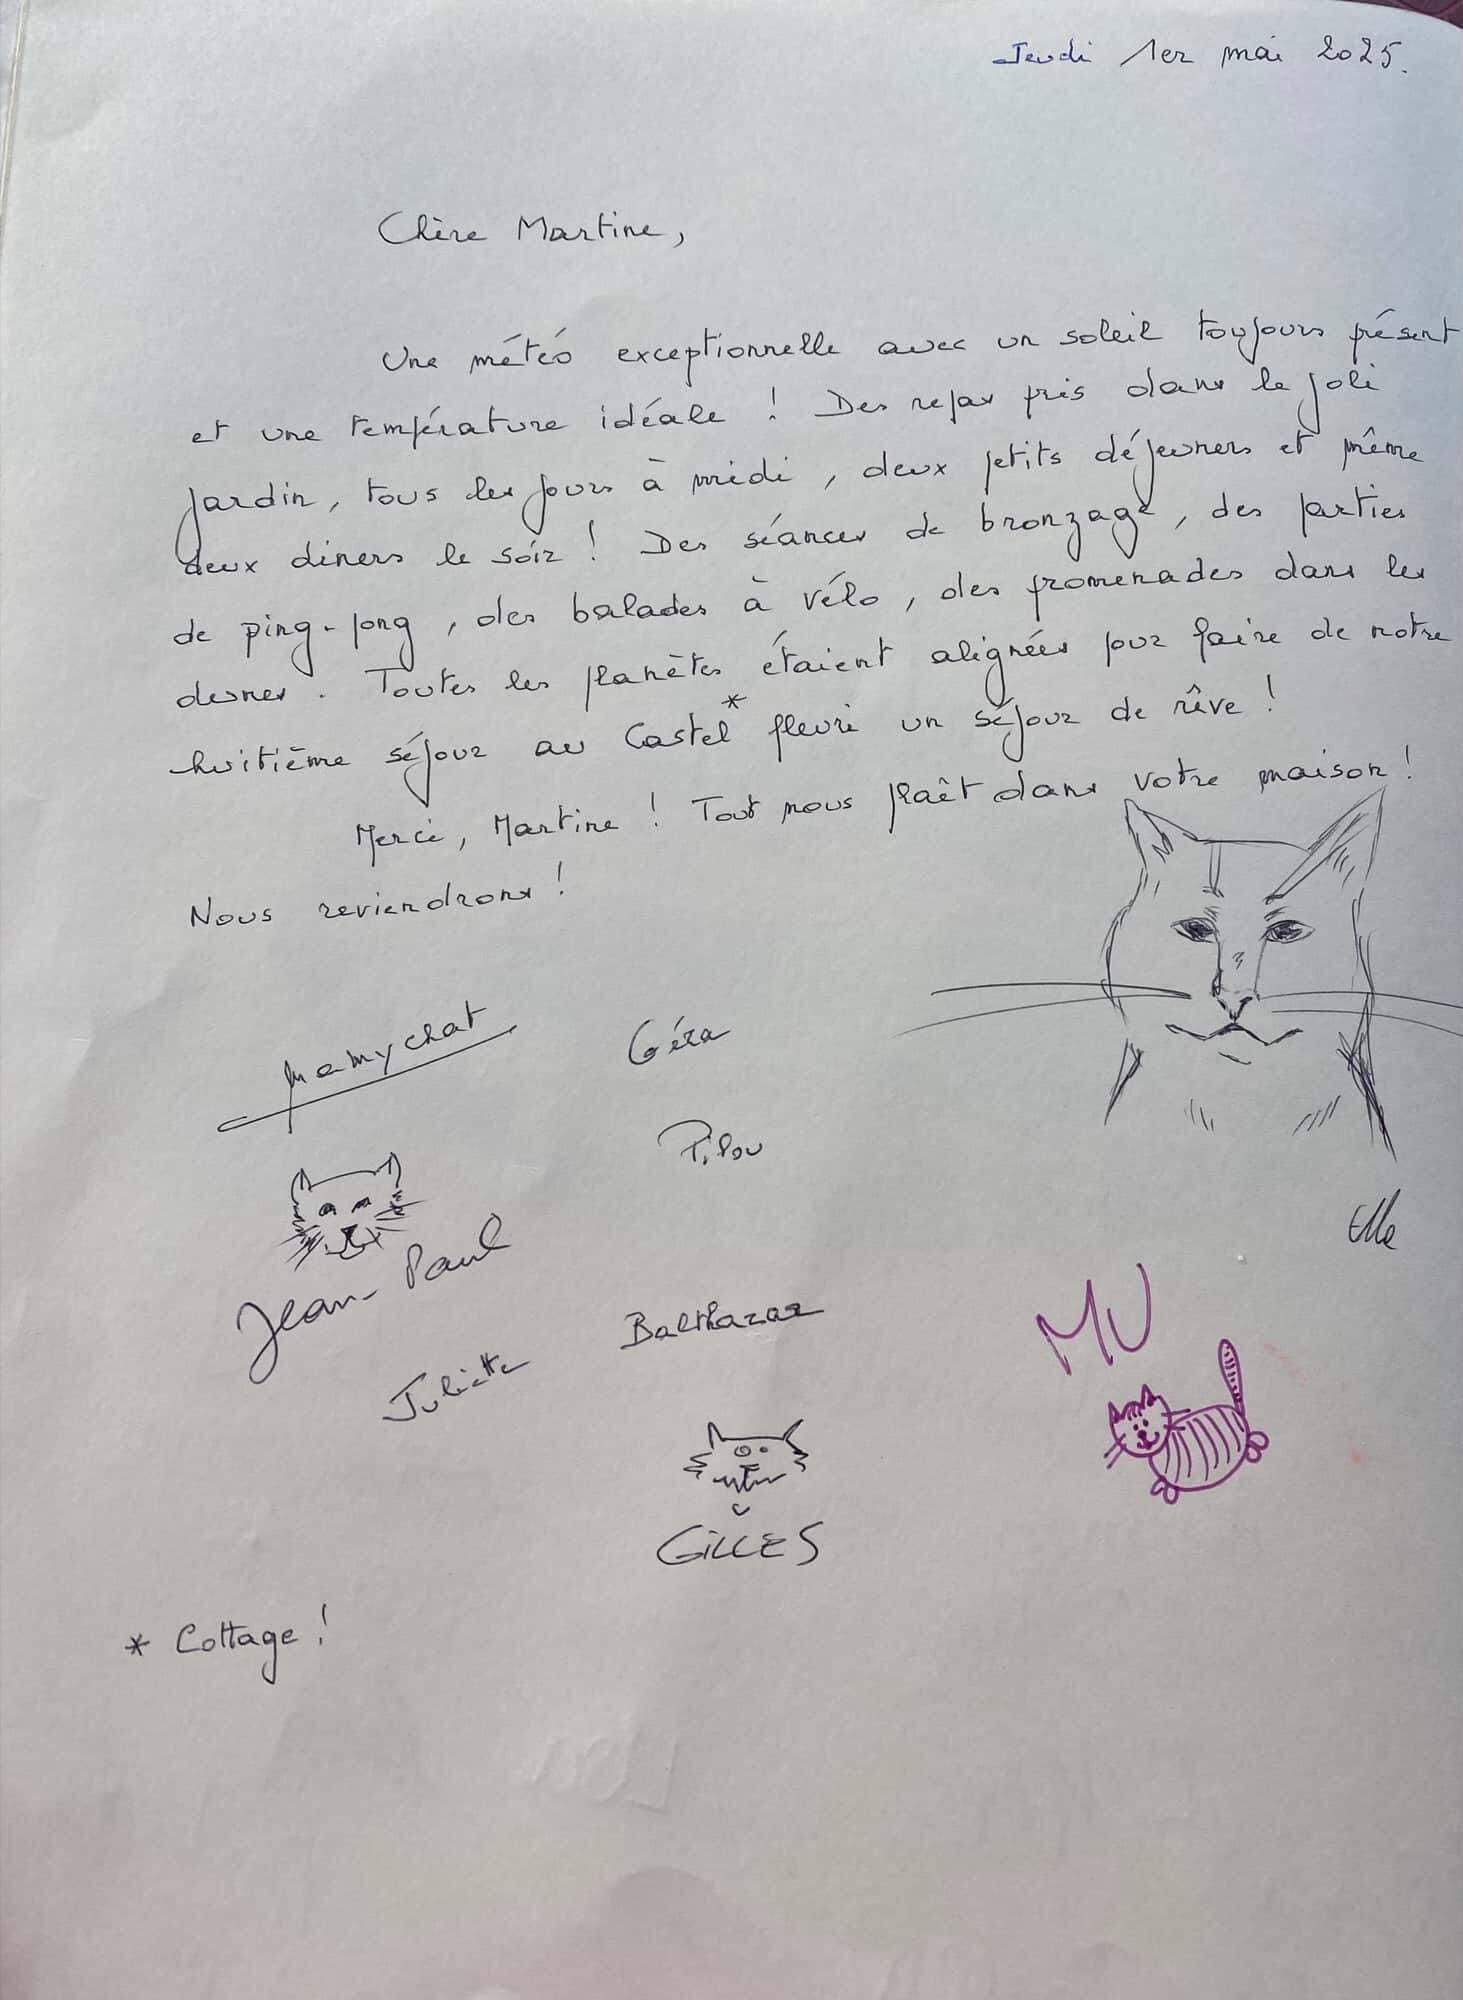 Jeudi 1er mai 2025.
Chère Martine,
Une météo exceptionnelle avec un soleil toujours présent
et une température idéale ! Des repas pris dans le joli
jardin, tous les jours à midi, deux petits déjeuners et même
deux diners le soir ! Des séances de bronzage, des parties
de ping-pong, des balades à vélo, des promenades dans les
dunes. Toutes les planètes étaient alignées pour faire de notre
huitième séjour au Castel* fleuri un séjour de rêve !
Merci, Martine ! Tout nous plaît dans votre maison !
Nous reviendrons !
Mamychat
Géra
Pilou
Elle
Jean-Paul
Balthazar
MU
Juliette
GILLES
* Cottage !